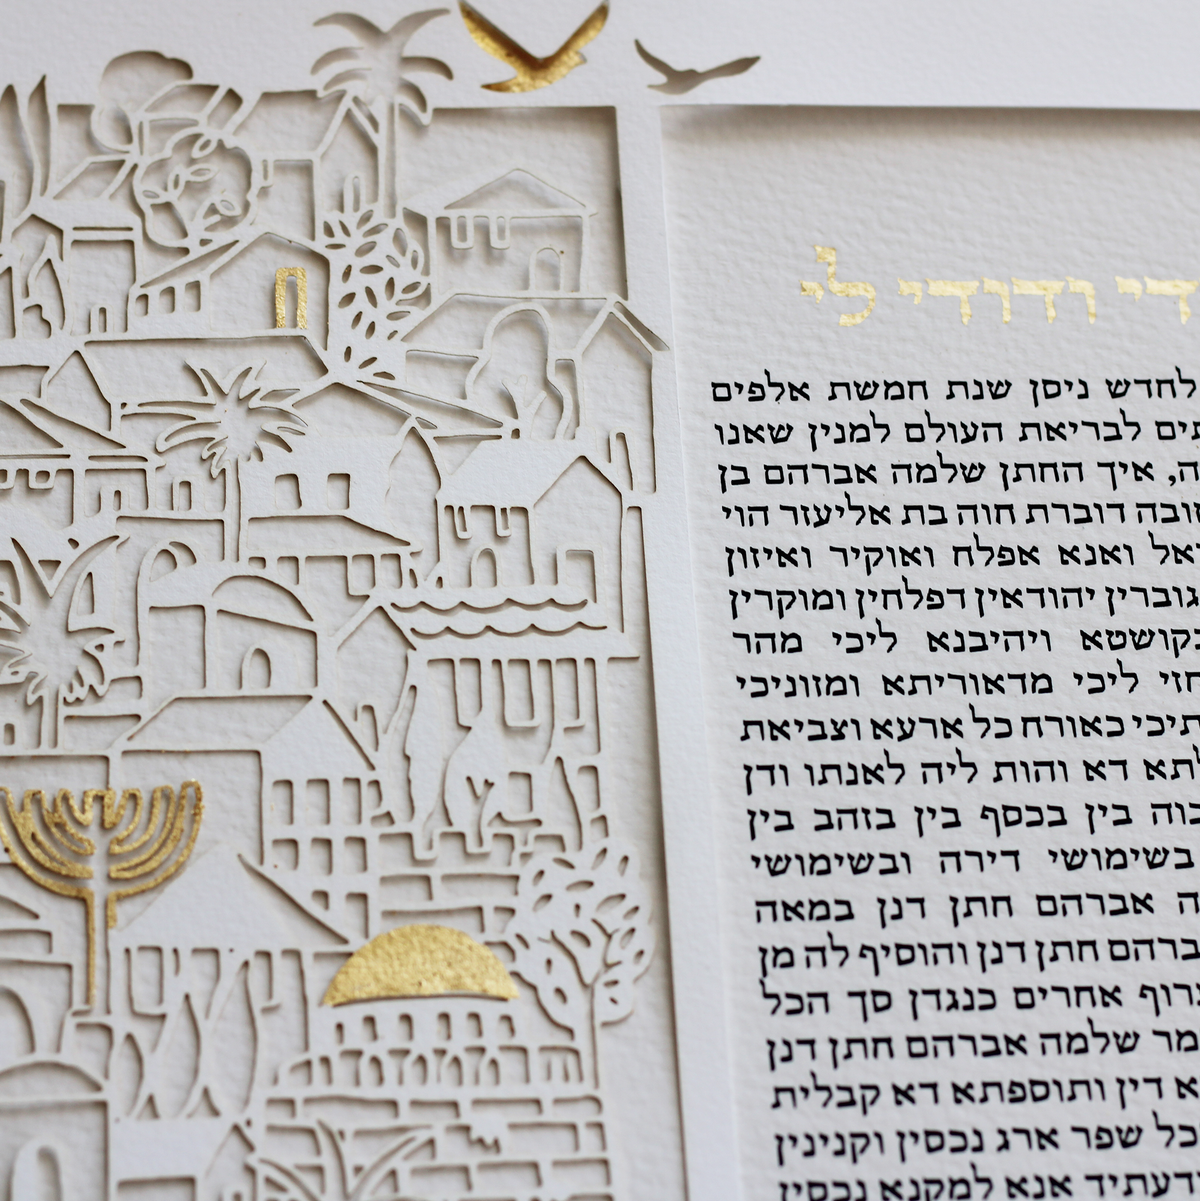 די ודודי לי
לחדש ניסן שנת חמשת אלפים
תים לבריאת העולם למנין שאנו
ה, איך החתן שלמה אברהם בן
ובה דוברת חוה בת אליעזר הוי
אל ואנא אפלח ואוקיר ואיזון
גוברין יהודאין דפלחין ומוקרין
בקושטא ויהיבנא ליכי מהר
חזי ליכי מדאוריתא ומזוניכי
תיכי כאורח כל ארעא וצביאת
לתא דא והות ליה לאנתו ודן
בוה בין בכסף בין בזהב בין
בשימושי דירה ובשימושי
ה אברהם חתן דנן במאה
ברהם חתן דנן והוסיף לה מן
רוף אחרים כנגדן סך הכל
מר שלמה אברהם חתן דנן
א דין ותוספתא דא קבלית
כל שפר ארג נכסין וקנינין
דעתיד אנא למקנא נכסין